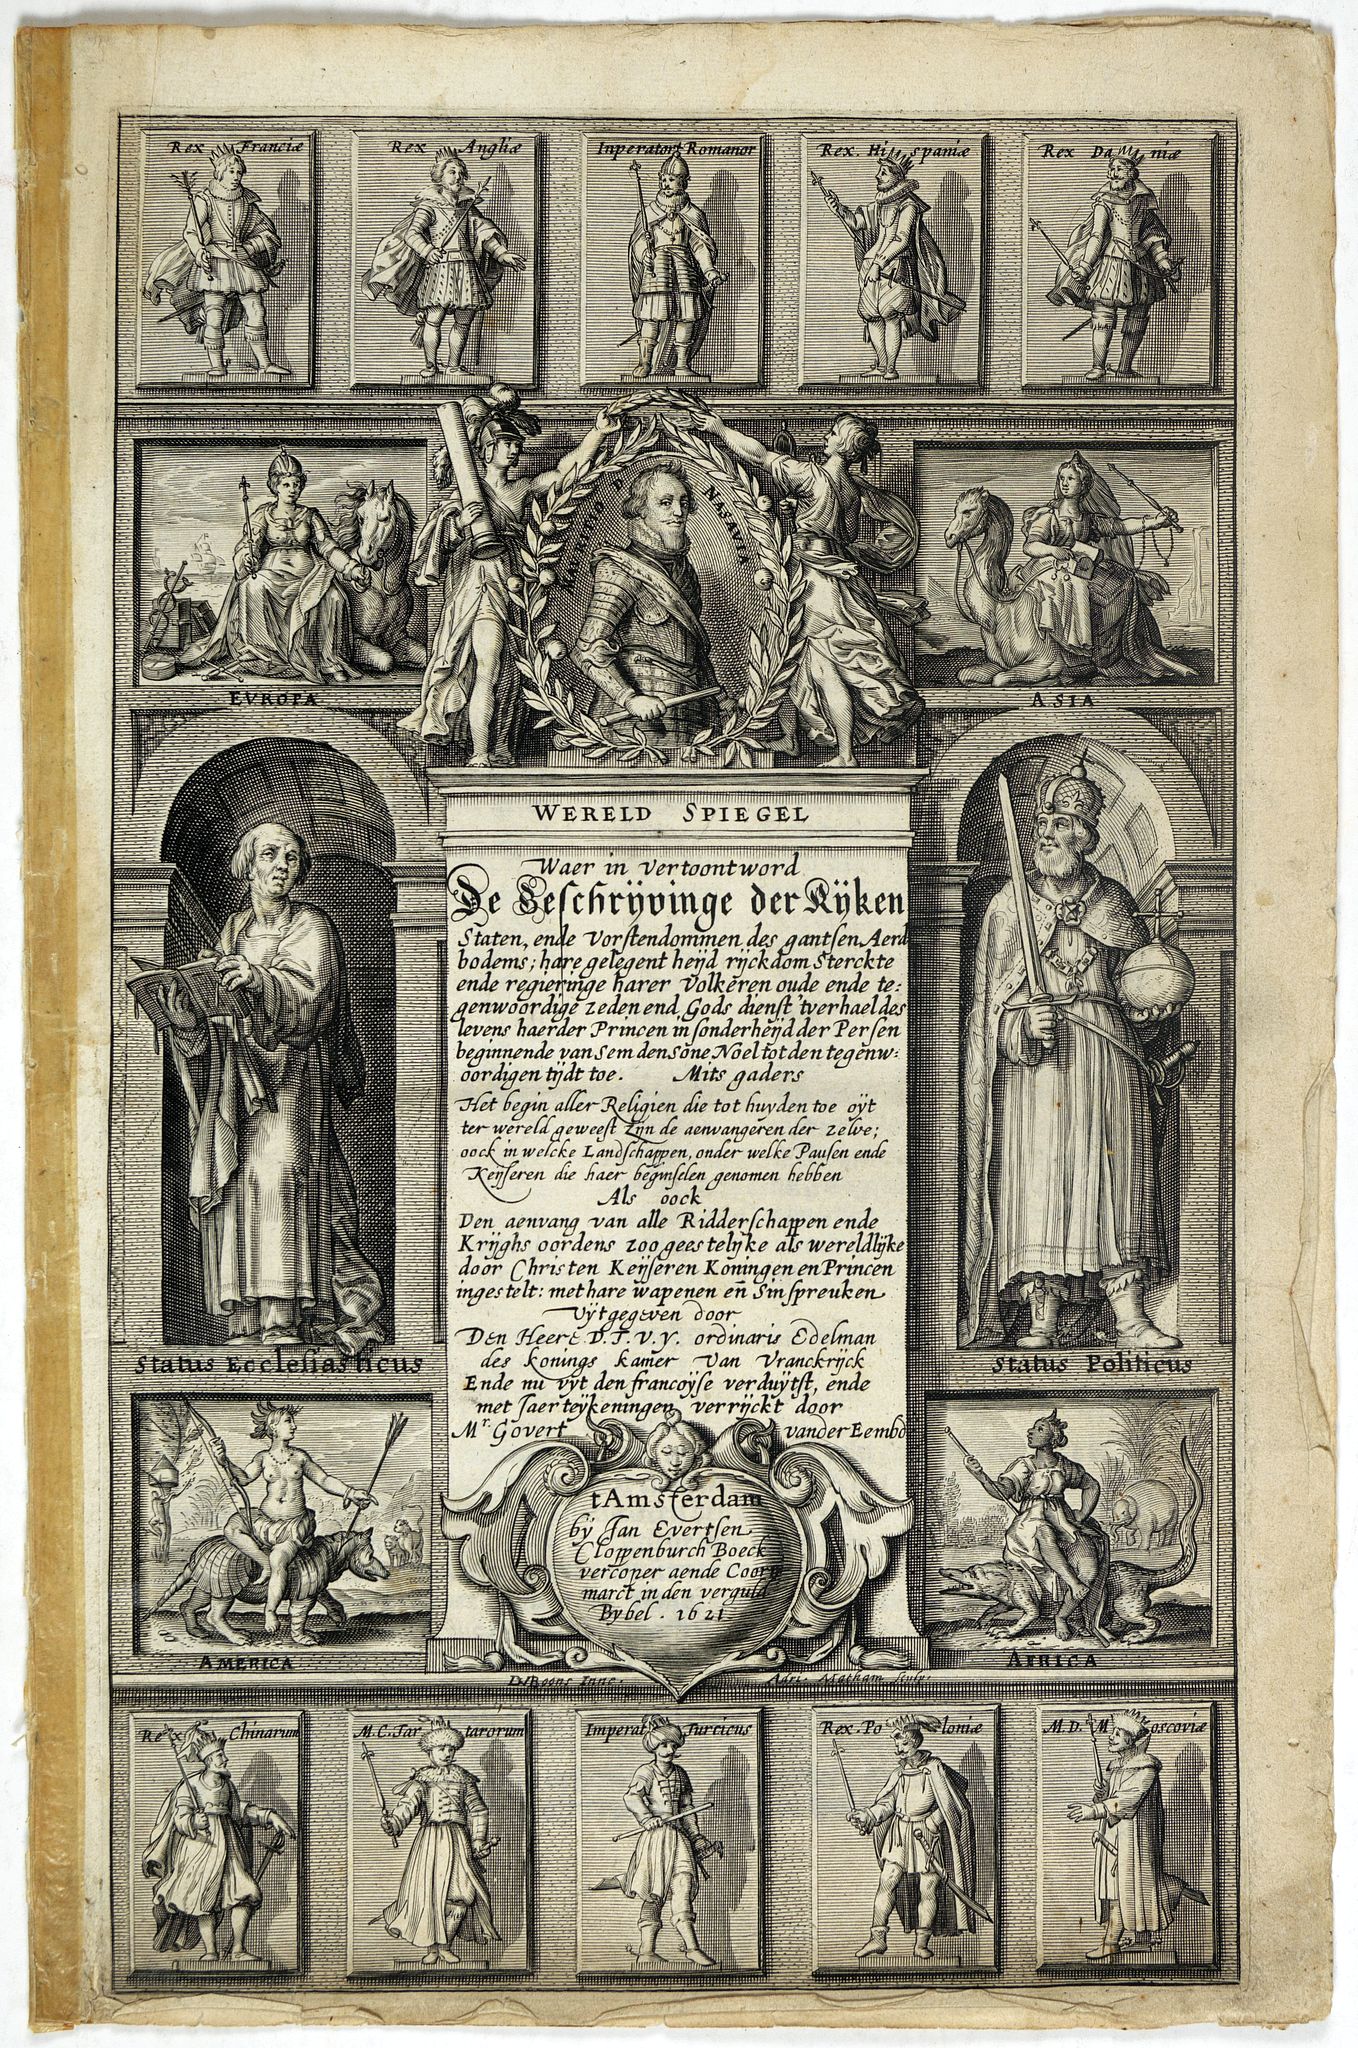 Rex Franciæ
Rex Angliæ
Inperator Romanor
Rex. Hispaniæ
Rex Daniæ
NASAVIÆ
EVROPA
ASIA
WERELD SPIEGEL
Waer in vertoont word
De Beschrijvinge der Rijken
Staten, ende Vorstendommen des gantsen Aerd
bodems; hare gelegent heijd rijckdom Sterckte
ende regieringe harer Volkeren oude ende te:
genwoordige zeden end, Gods dienst 'tverhael des
levens haerder Princen in sonderheijd der Persen
beginnende van Sem den Sone Noe tot den tegenw:
oordigen tijdt toe. Mits gaders
Het begin aller Religien die tot huyden toe oijt
ter wereld geweest Zijn de aenvangeren der zelve;
oock in welcke Landschappen, onder welke Pausen ende
Keijseren die haer beginselen genomen hebben
Als oock
Den aenvang van alle Ridderschappen ende
Krijghs oordens zoo geestelijke als wereldlijke
door Christen Keijseren Koningen en Princen
ingestelt: met hare wapenen eñ Sinspreuken
Uijtgegeven door
Den Heere D.T.V.Y. ordinaris Edelman
des konings kamer van Vranckrijck
Ende nu uyt den francoijse verduijtst, ende
met Jaerteijkeningen verrijckt door
Mr. Govert vander Eembd
Status Ecclesiasticus
Status Politicus
tAmsterdam
bij Jan Evertsen
Cloppenburch Boeck
vercoper aende Coorn
marct in den verguld
Bybel. 1621
AMERICA
AFRICA
Adri. Matham Sculp.
Rex Chinarum
M.C. Tartarorum
Imperat Turcicus
Rex. Poloniæ
M.D. Moscoviæ